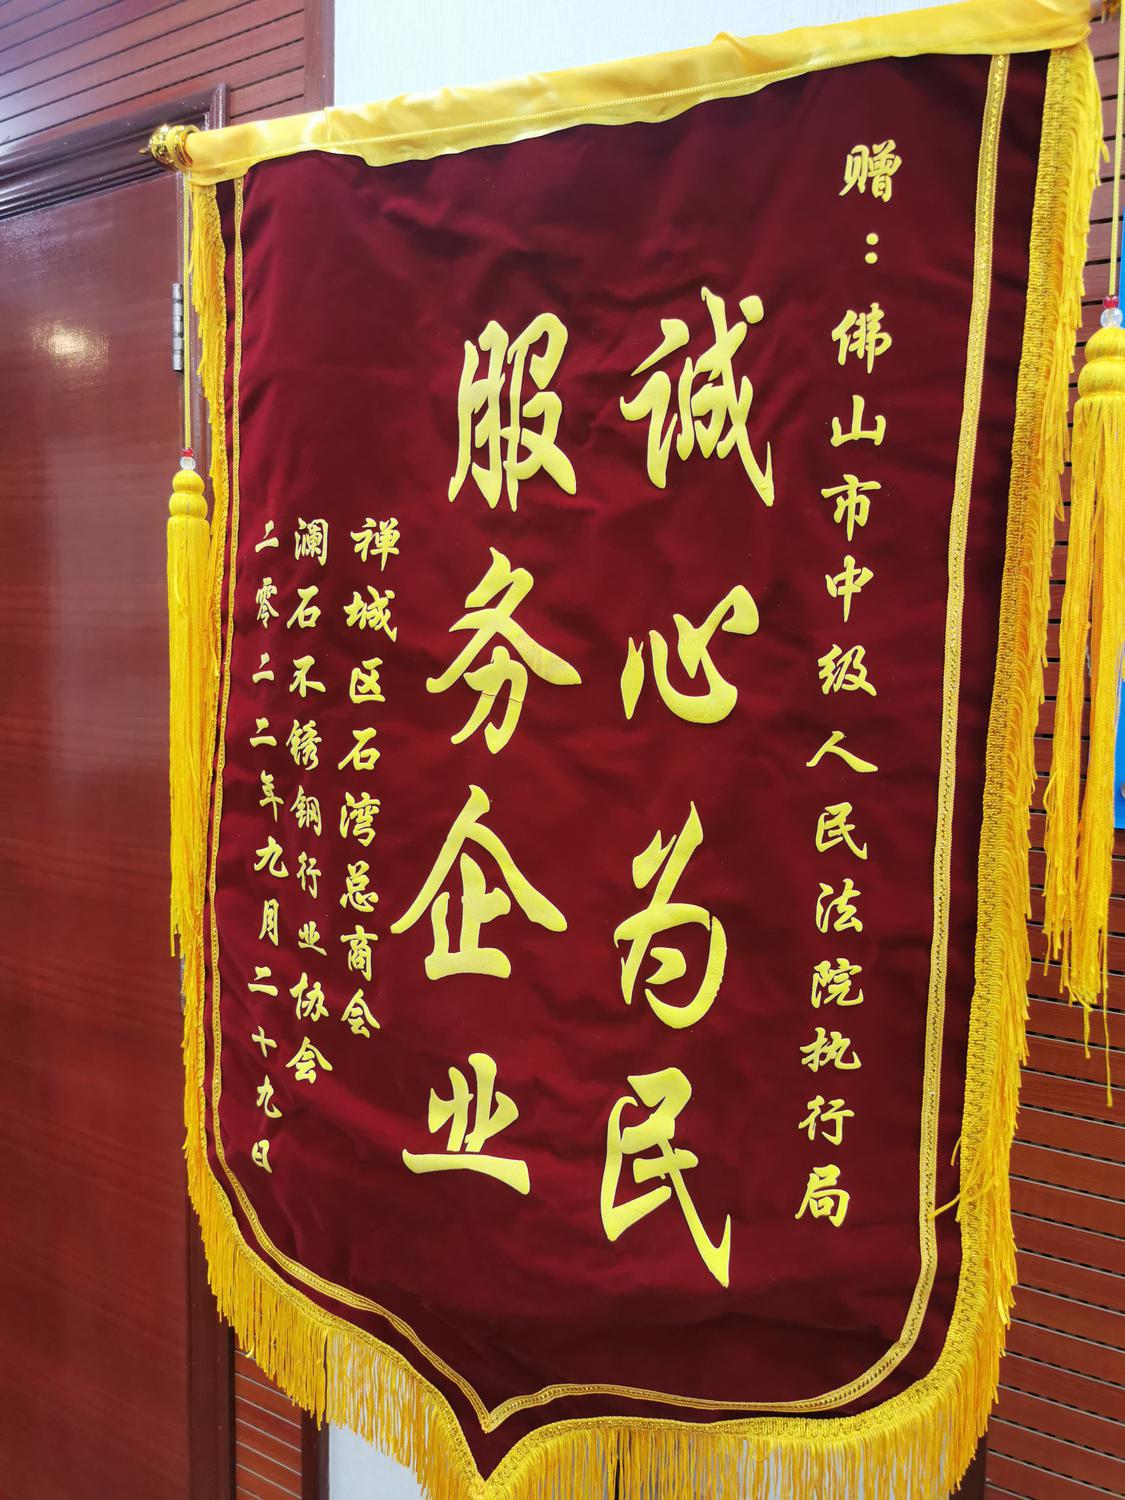 赠：佛山市中级人民法院执行局
诚心为民
服务企业
禅城区石湾总商会
澜石不锈钢行业协会
二零二二年九月二十九日